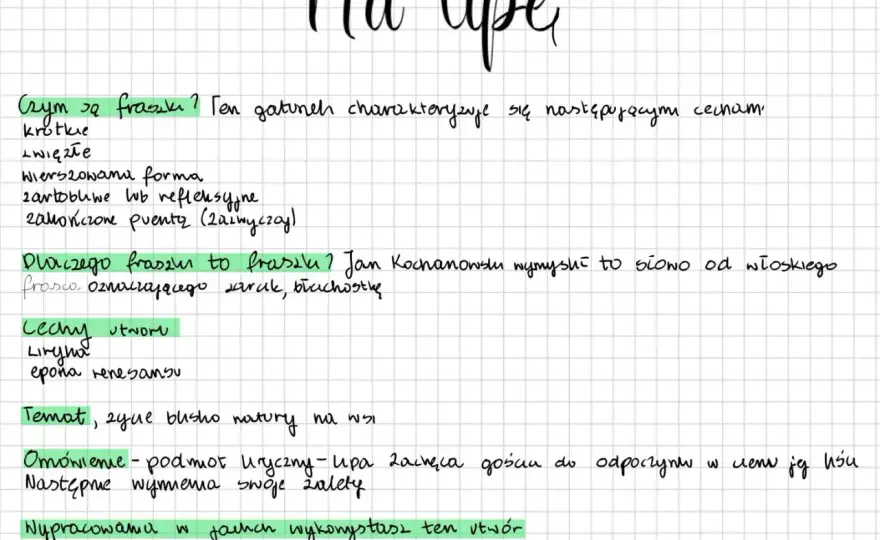 Na lipę
Czym są fraszki? Ten gatunek charakteryzuje się następującymi cechami
krótkie
zwięzłe
wierszowana forma
żartobliwe lub refleksyjne
zakończone puentą (zazwyczaj)
Dlaczego fraszki to fraszki? Jan Kochanowski wymyślił to słowo od włoskiego
frasca oznaczającego żarcik, błachostkę
Cechy utworu
Liryka
epoka renesansu
Temat, życie blisko natury na wsi
Omówienie - podmiot liryczny - lipa zachęca gościa do odpoczynku w cieniu jej liści
Następnie wymienia swoje zalety
Wypracowania w jakich wykorzystasz ten utwór